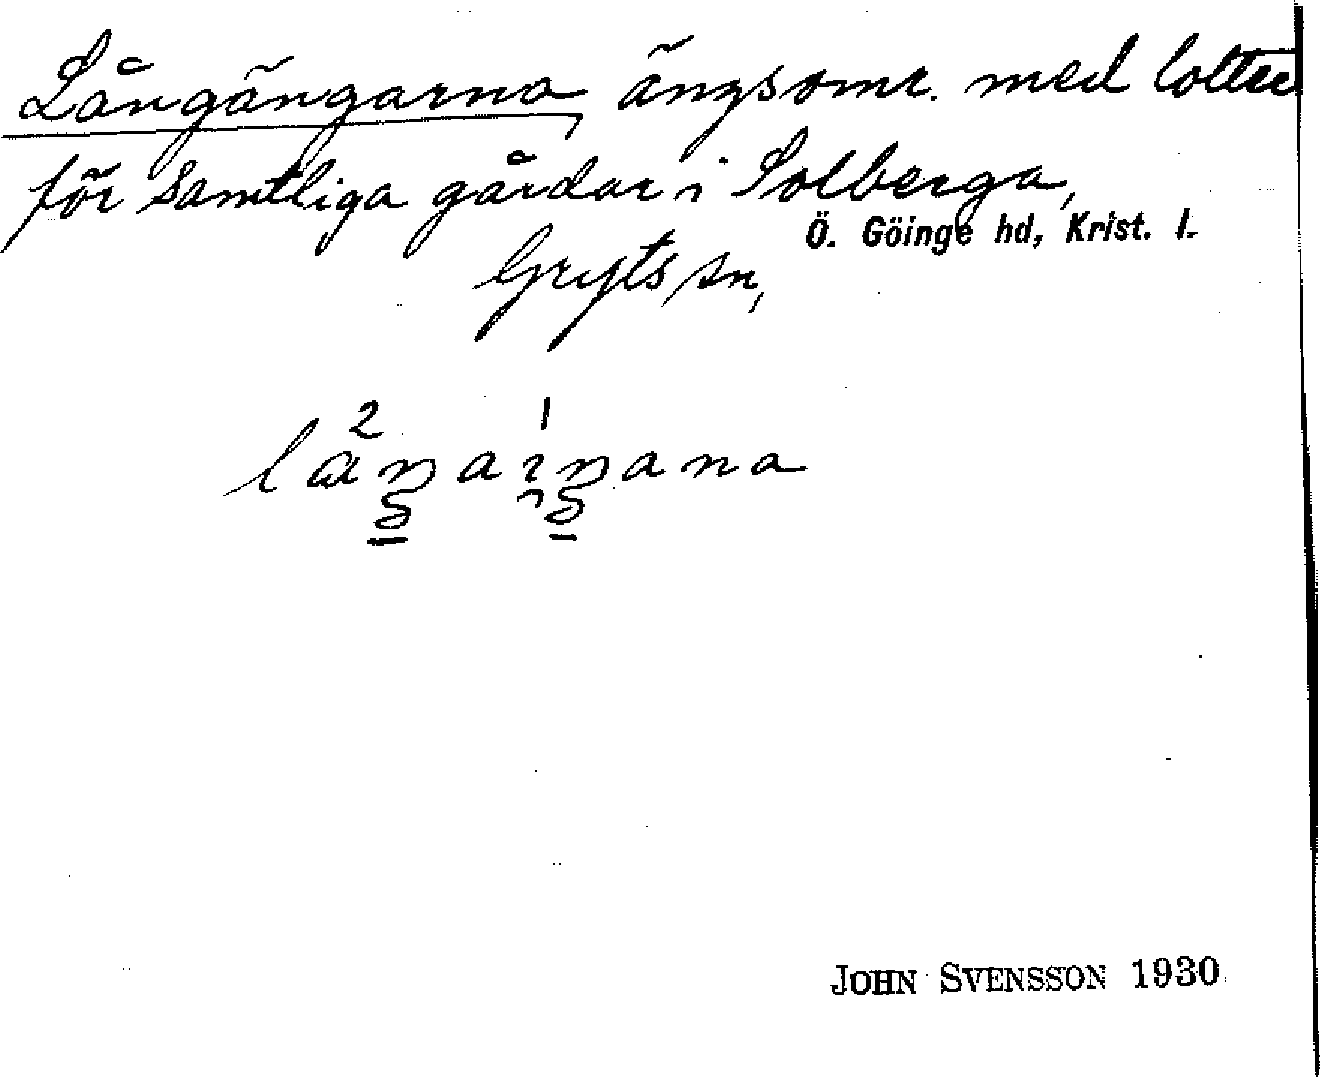 Långängarna, ängsomr. med lotter
för samtliga gårdar i Solberga,
Ö. Göinge hd, Krist. l.
Gryts sn,
2 1
JOHN SVENSSON 1930